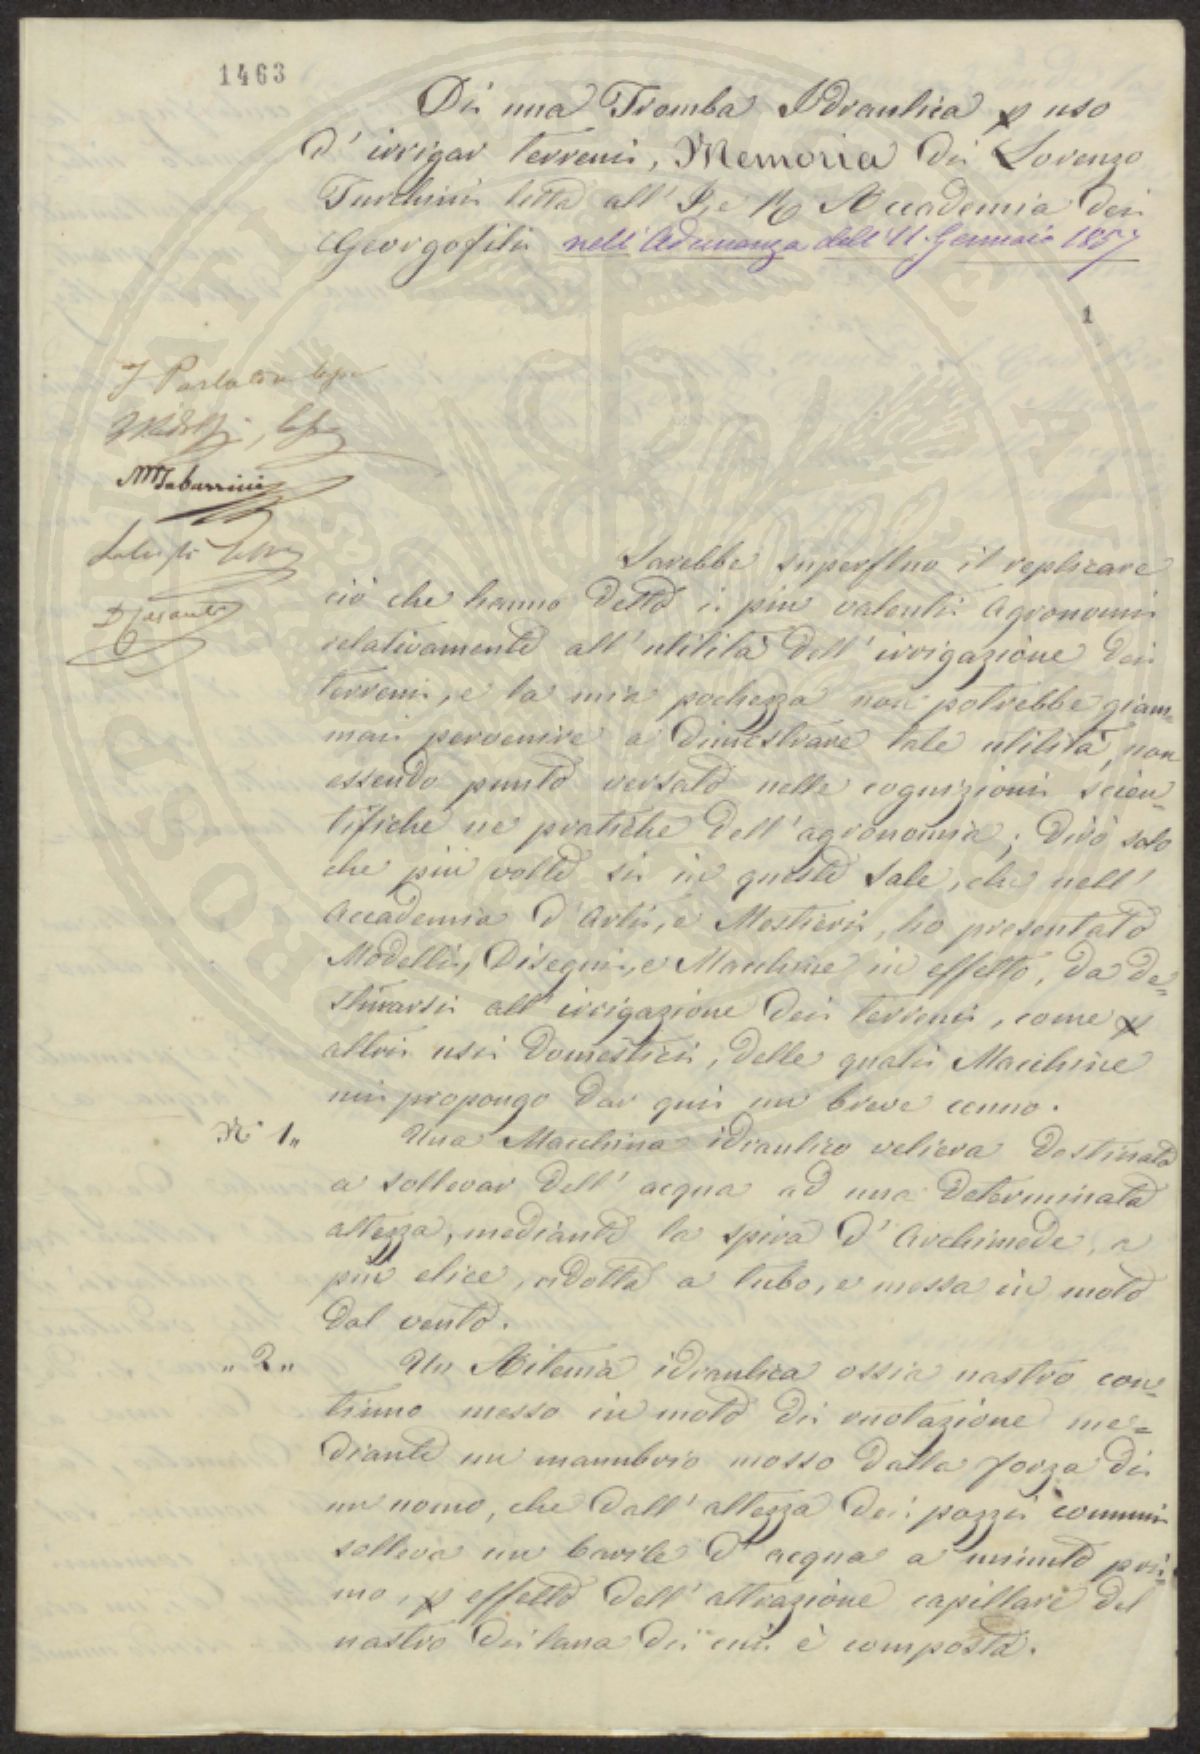 1463
Di una Tromba Idraulica p uso
d' irrigar terreni, Memoria di Lorenzo
Turchini letta all' I. e R. Accademia dei
Georgofili nell' Adunanza dell' 11. Gennaio 1857
1
Tabarrini
Sarebbe superfluo il replicare
ciò che hanno detto i più valenti Agronomi
relativamente all' utilità dell' irrigazione dei
terreni, e la mia pochezza non potrebbe giam=
mai pervenire a dimostrare tale utilità, non
essendo punto versato nelle cognizioni scien=
tifiche ne pratiche dell' agronomia; dirò solo
che più volte si in queste Sale, che nell'
Accademia d' Arti, e Mestieri, ho presentato
Modelli, Disegni, e Macchine in effetto, da de=
stinarsi all' irrigazione dei terreni, come p
altri usi domestici, delle quali Macchine
mi propongo dar qui un breve cenno.
N.° 1,, Una Macchina idraulico veliera destinata
a sollevar dell' acqua ad una determinata
altezza, mediante la spira d' Archimede, a
più elice, ridotta a tubo, e messa in moto
dal vento.
,, 2,, Un Sistema idraulica ossia nastro con=
tinuo messo in moto di ruotazione me=
diante un manubrio mosso dalla forza di
un uomo, che dall' altezza dei pozzi comuni
solleva un barile d' acqua a minuto pri=
mo, p effetto dell' attrazione capillare del
nastro di lana di cui è composta.